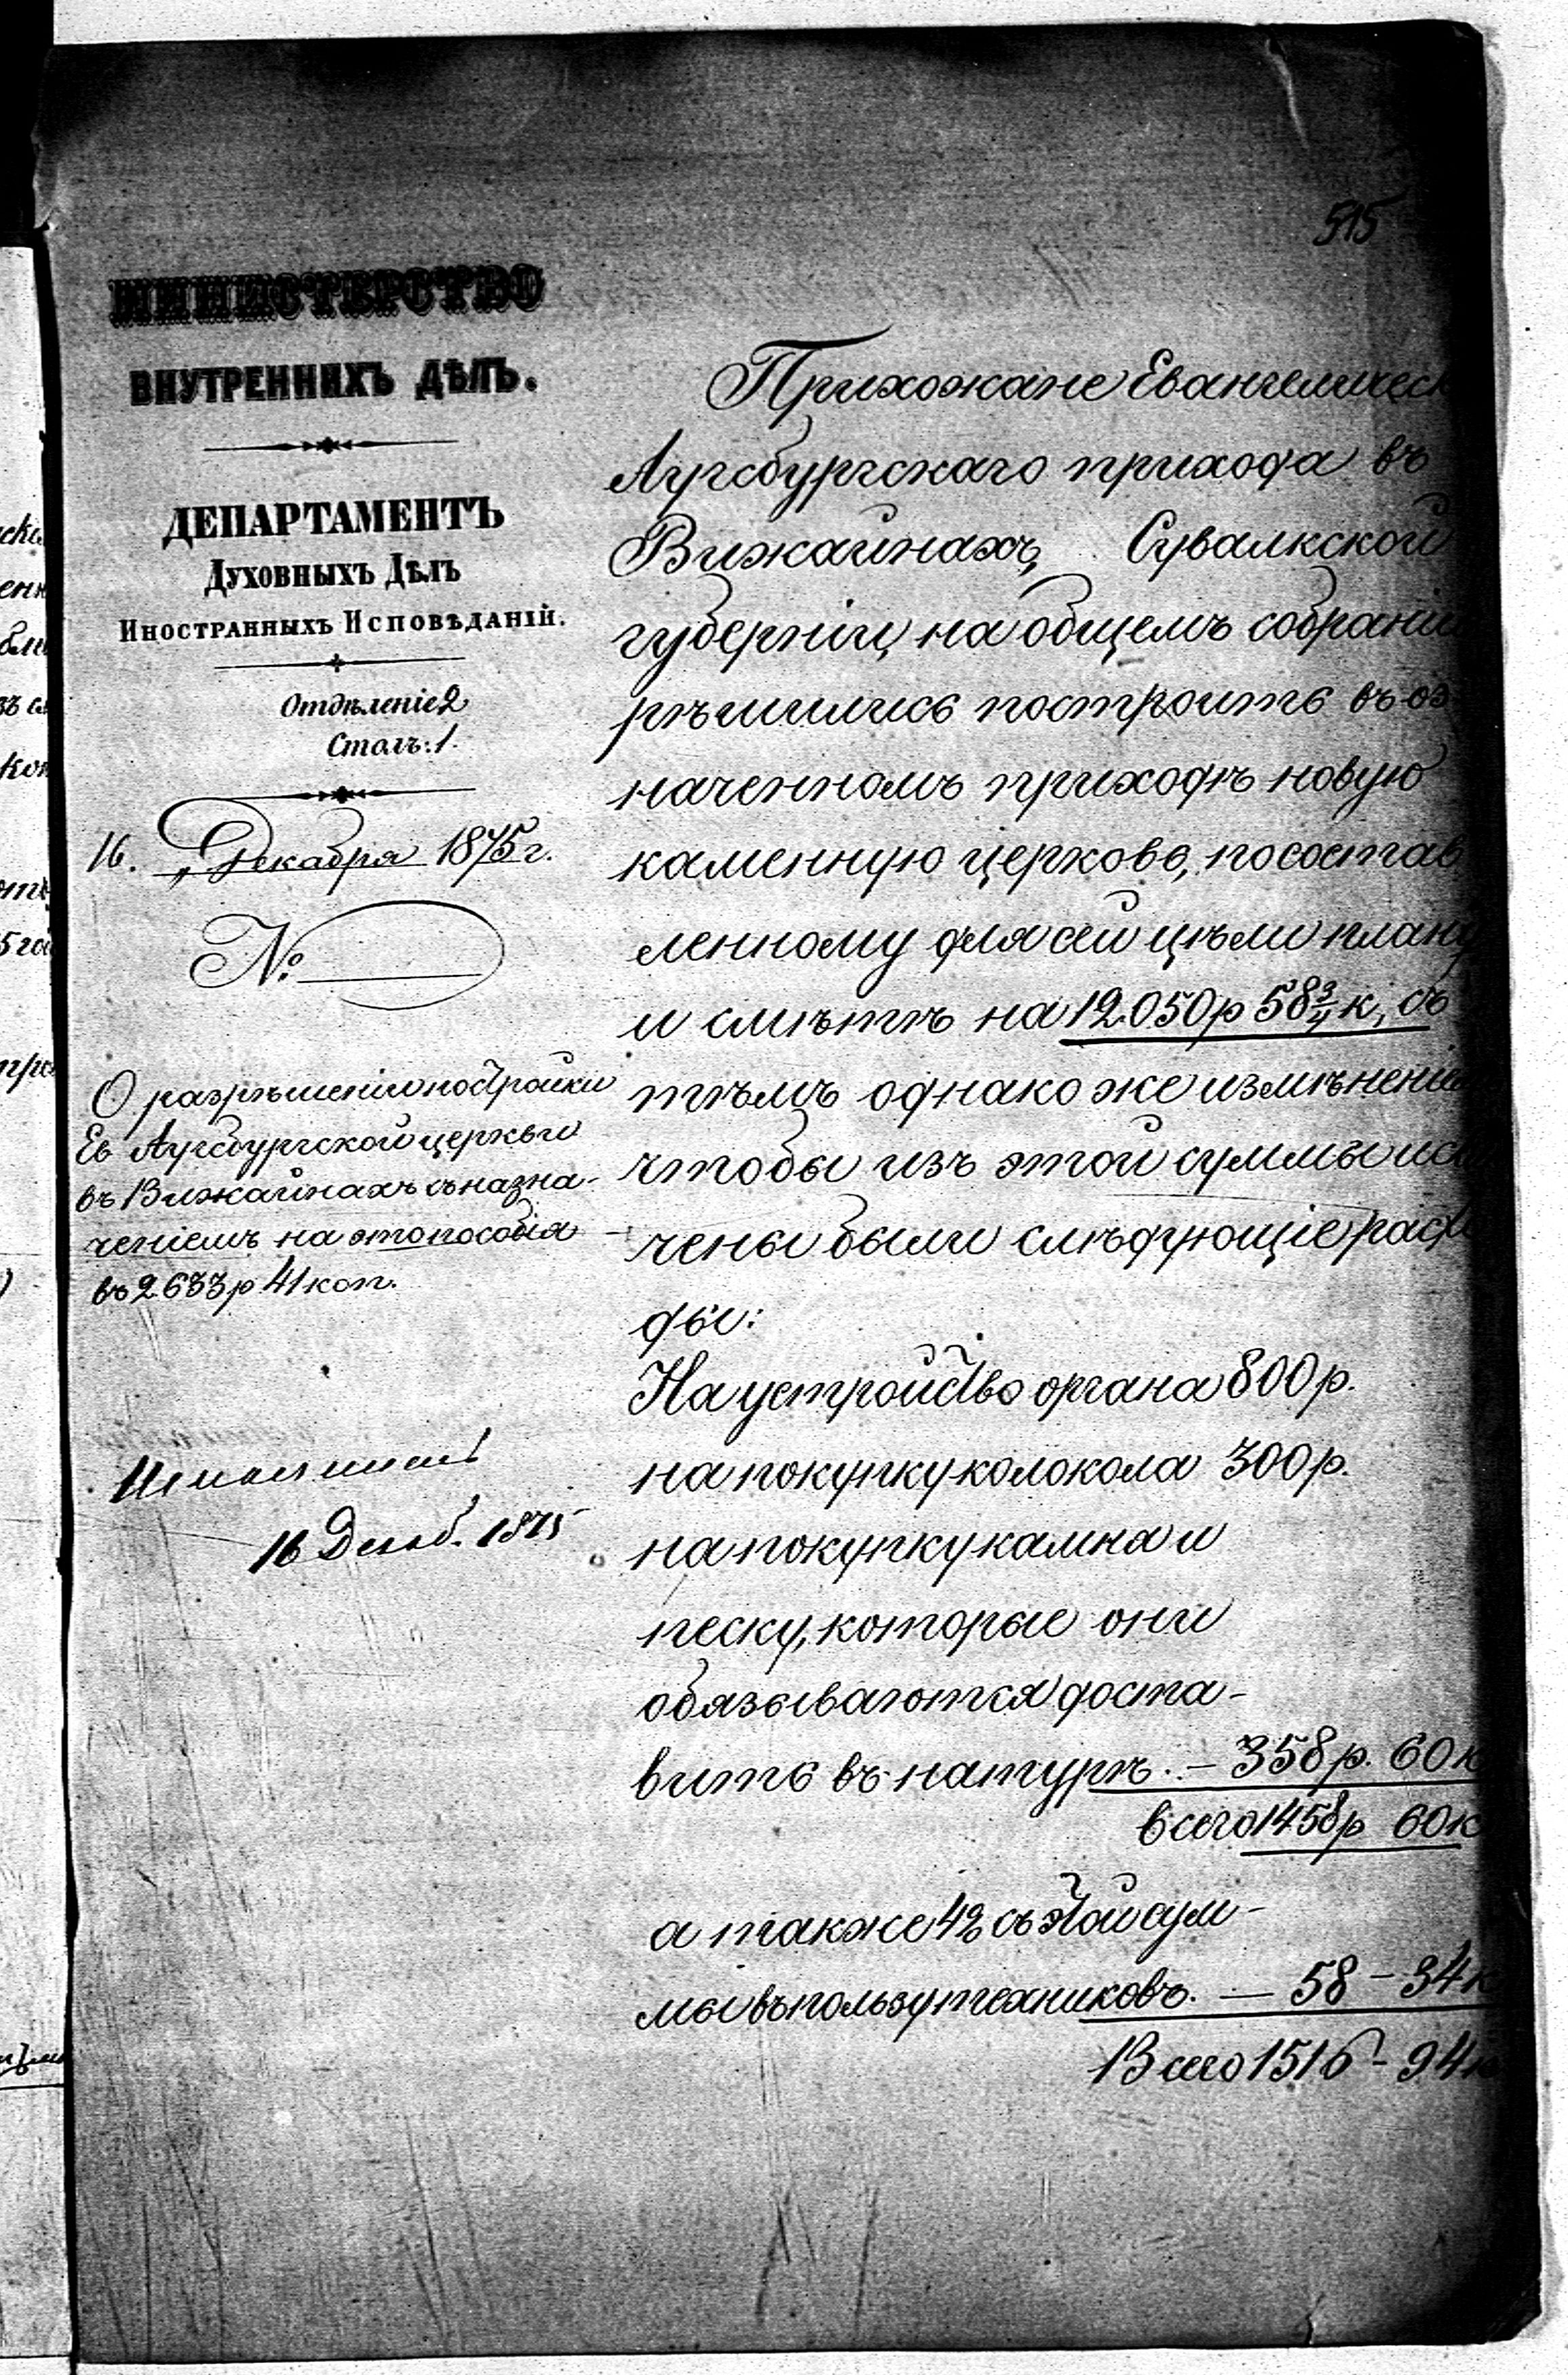 515
МИНИСТЕРСТВО
ВНУТРЕННИХЪ ДѢЛЪ.
ДЕПАРТАМЕНТЪ
ДУХОВНЫХЪ ДѢЛЪ
ИНОСТРАННЫХЪ ИСПОВѢДАНІЙ.
Отдѣленіе 2
Столъ: 1.
16. „ Декабря 1875 г.
№
О разрѣшеніи постройки
Ев Аугсбургской церкви
въ Вижайнахъ съ назна-
ченіемъ на это пособія
въ 2633 р 41 коп.
16 Декаб. 1875
Прихожане Евангелическ
Аугсбургскаго прихода въ
Вижайнахъ, Сувалкской
губерніи, на общемъ собраніи
рѣшились построить въ оз
наченномъ приходѣ новую
каменную церковь, по состав
ленному для сей цѣли плану
и смѣтѣ на 12.050 р 58 3/4 к, съ
тѣмъ однако же измѣненіе
чтобы изъ этой суммы иск
чены были слѣдующіе расхо
ды:
На устройство органа 800 р.
на покупку колокола 300 р.
на покупку камня и
песку, которые они
обязываются доста-
вить въ натурѣ. - 358 р. 60 к
всего 1458 р 60 к
а также 4% съ этой сум-
мы въ пользу техниковъ. — 58 - 34 к
Всего 1516 - 94 к